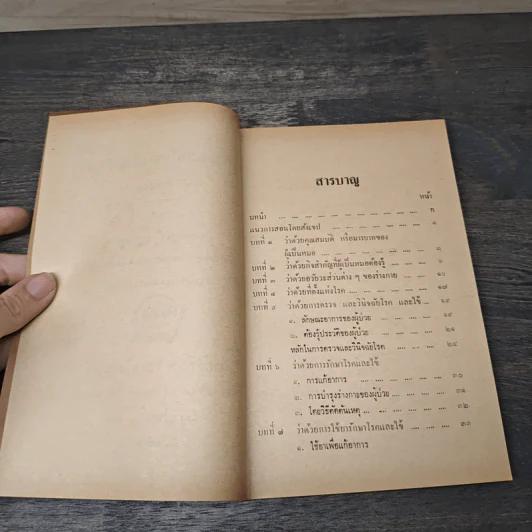 สารบาญ
หน้า
บทนำ ... ... ... ... ... ... ... ... ก
แนวการสอนโดยสังเขป ... ... ... ... ... ๑
บทที่ ๑ ว่าด้วยคุณสมบัติ หรือมารยาทของ
ผู้เป็นหมอ ... ... ... ... ...
บทที่ ๒ ว่าด้วยกิจสำคัญที่ผู้เป็นหมอต้องรู้ ... ...
บทที่ ๓ ว่าด้วยอวัยวะส่วนต่าง ๆ ของร่างกาย ... ...
บทที่ ๔ ว่าด้วยที่ตั้งแห่งโรค ... ... ... ...
บทที่ ๕ ว่าด้วยการตรวจ และวินิจฉัยโรค และไข้ ...
๑. ลักษณะอาการของผู้ป่วย ... ...
๒. ต้องรู้ประวัติของผู้ป่วย ... ... ๒๑
หลักในการตรวจและวินิจฉัยโรค ... ... ๒๔
บทที่ ๖ ว่าด้วยการรักษาโรคและไข้
๑. การแก้อาการ ... ... ... ... ๓๑
๒. การบำรุงร่างกายของผู้ป่วย ... ...
๓. โดยวิธีตัดต้นเหตุ ... ... ... ... ๓๒
บทที่ ๗ ว่าด้วยการใช้ยารักษาโรคและไข้ ... ... ๓๓
๑. ใช้ยาเพื่อแก้อาการ